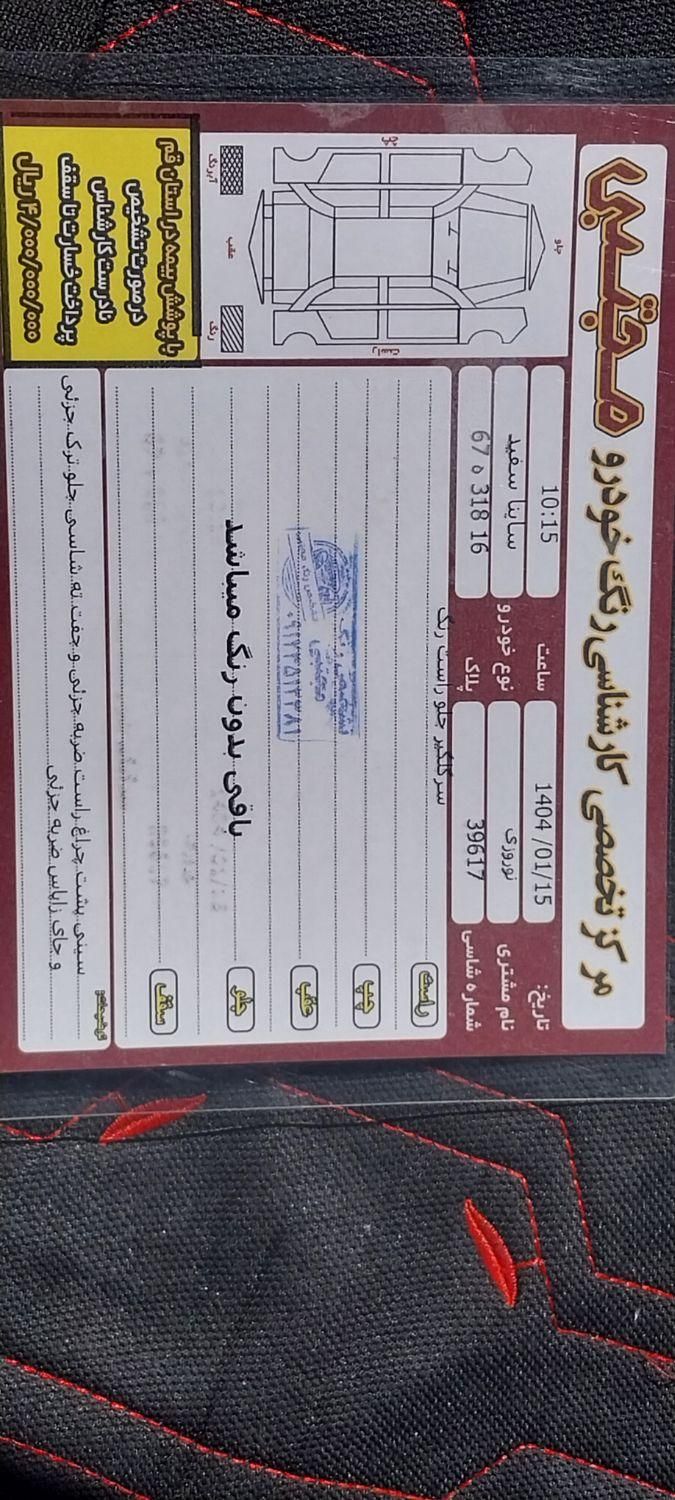 مرکز تخصصی کارشناسی رنگ خودرو مجتبی
تاریخ: 1404 /01/15 ساعت 10:15
نام مشتری نوروزی نوع خودرو ساینا سفید
شماره شاسی 39617 پلاک 67 ه 318 16
جلو
چپ
راست
عقب
آبرنگ
رنگ
راست سرگلگیر جلو راست رنگ
چپ
عقب
جلو باقی بدون رنگ میباشد
سقف
توضیحات:
سینی پشت چراغ راست ضربه جزئی و جفت ته شاسی جلو ترک جزئی
و جای زاپاس ضربه جزئی
با پوشش بیمه در استان قم
در صورت تشخیص
نادرست کارشناس
پرداخت خسارت تا سقف
۴/۰۰۰/۰۰۰/۰۰۰ ریال